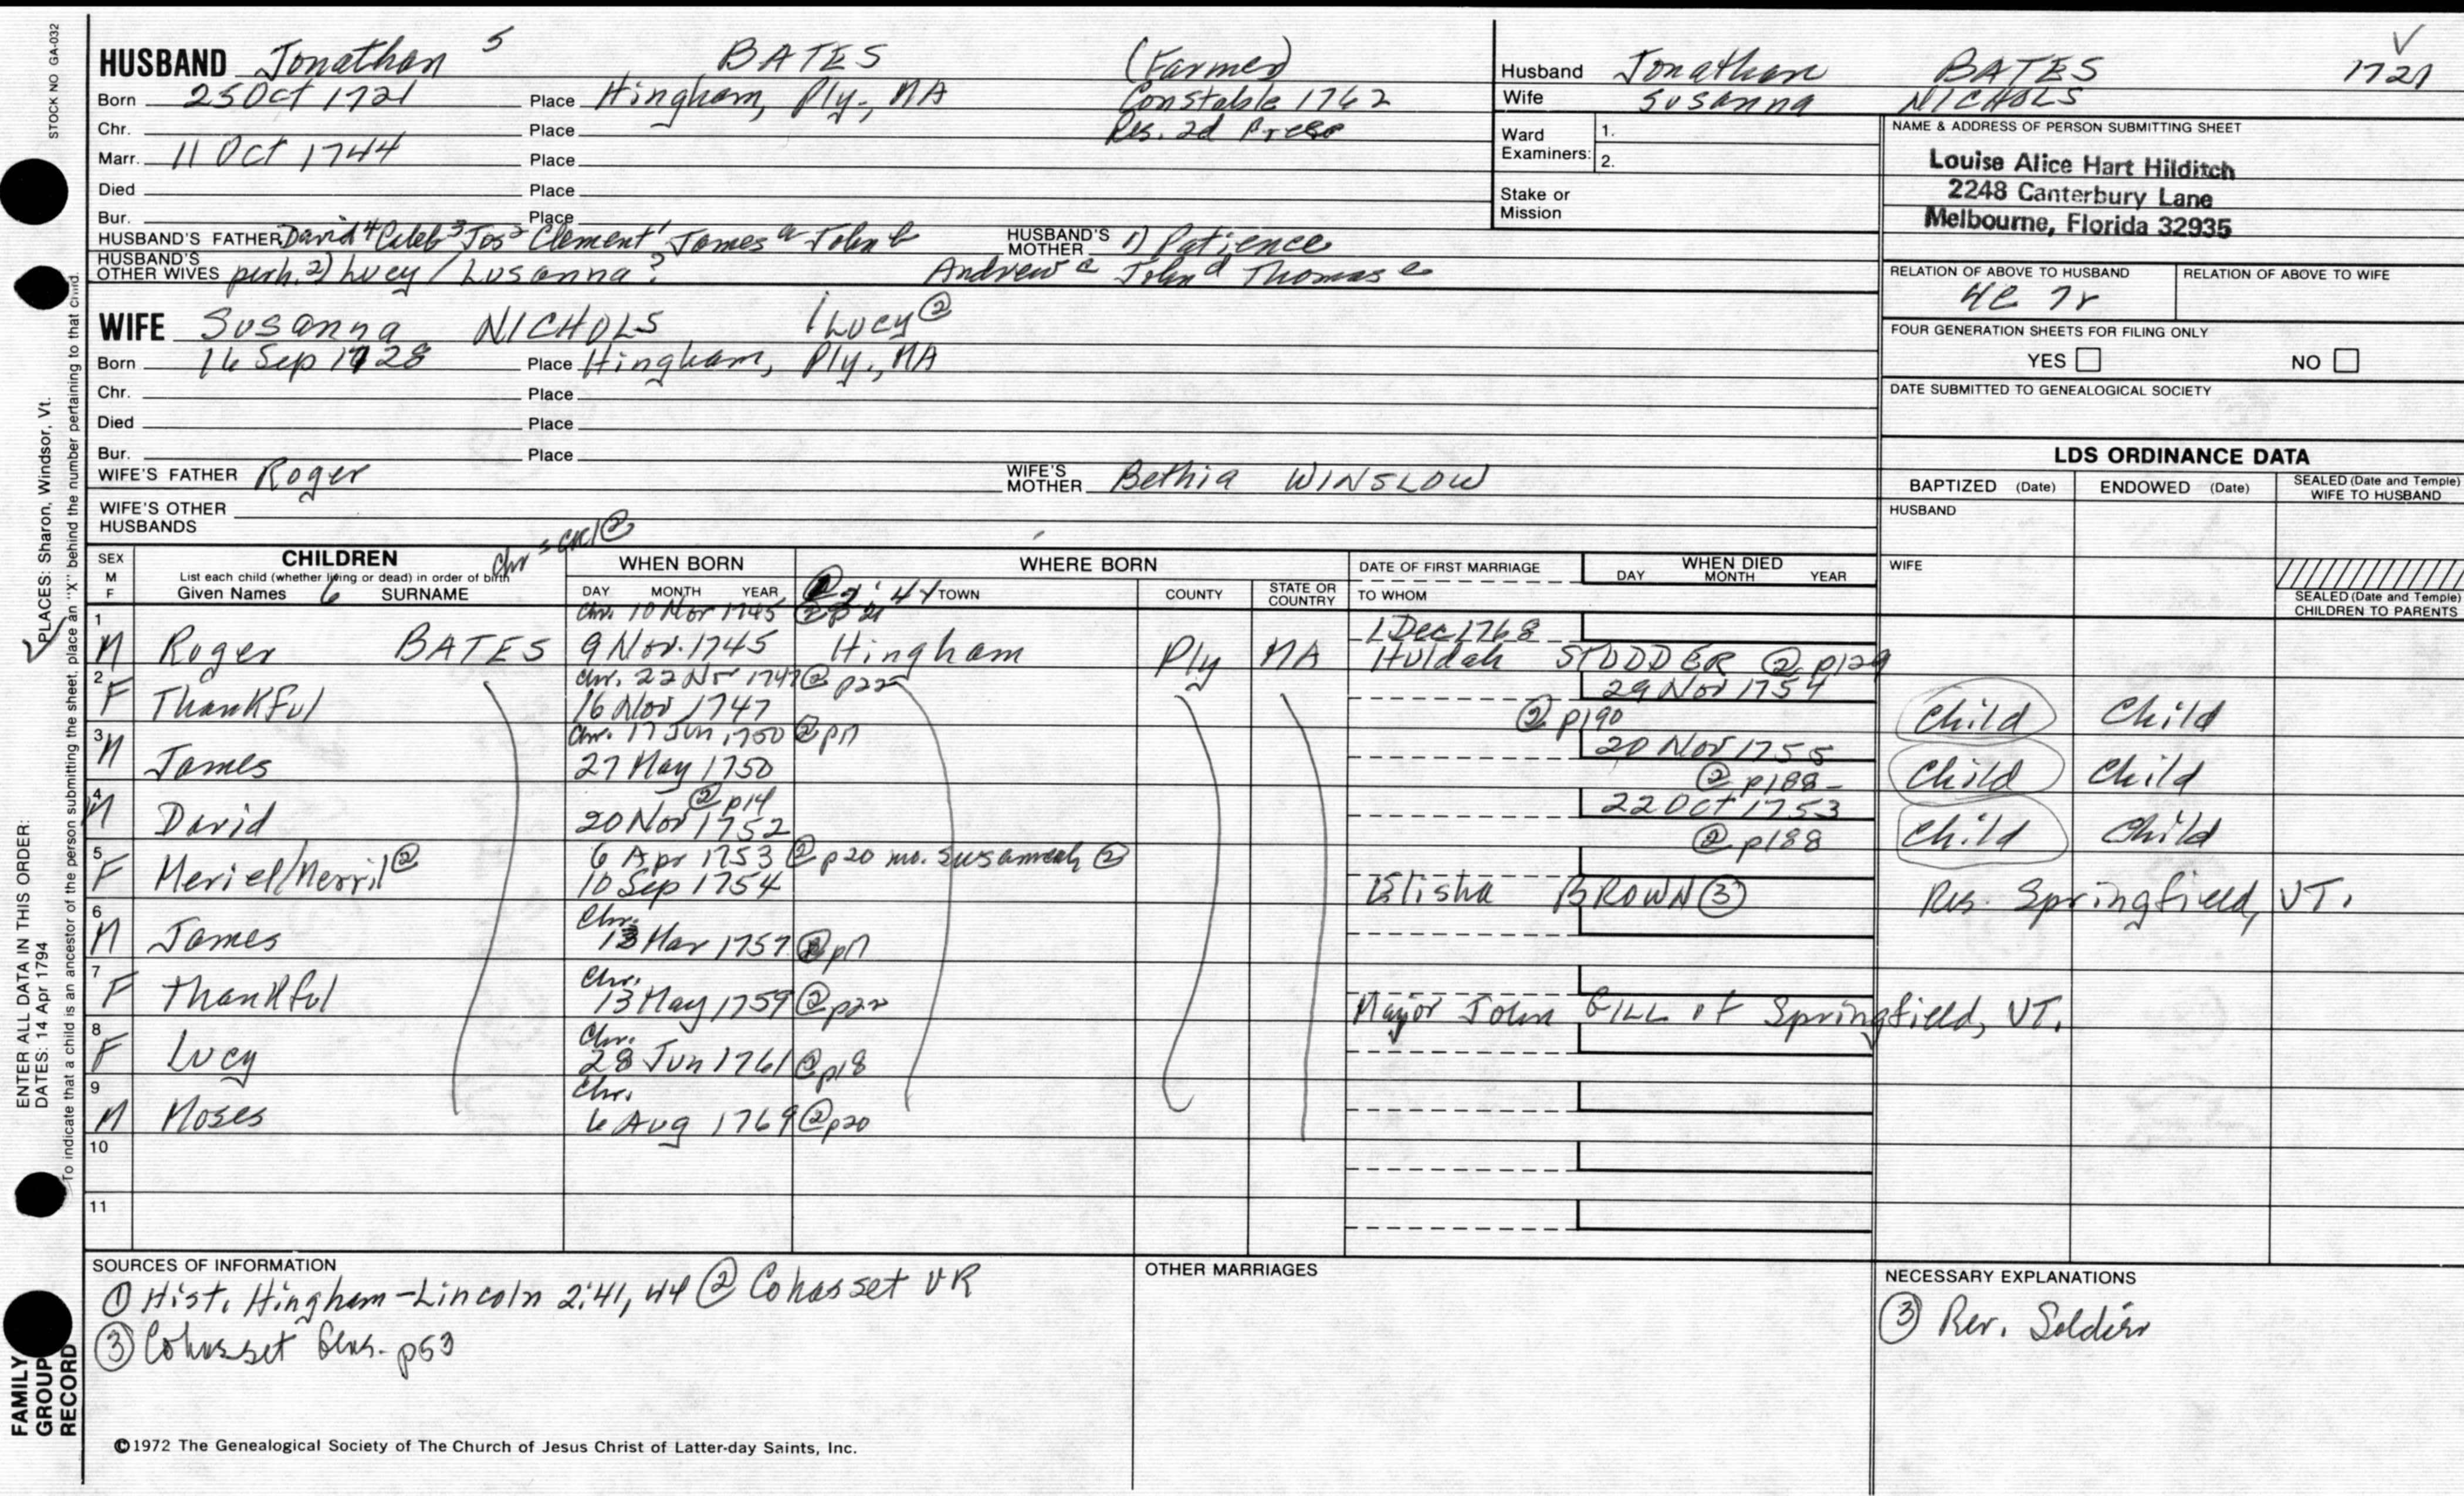 STOCK NO GA-032
HUSBAND Jonathan 5 BATES (Farmer)
Born 25 Oct 1721 Place Hingham, Ply., MA Constable 1762
Chr. Place Res. 2d
Marr. 11 Oct 1744 Place
Died Place
Bur. Place
HUSBAND'S FATHER David 4 Caleb 3 Jos 2 Clement 1 James a John b HUSBAND'S MOTHER 1) Patience
HUSBAND'S OTHER WIVES perh. 2) Lucy / Lusanna? Andrew c John d Thomas e
WIFE Susanna NICHOLS / Lucy @
Born 16 Sep 1728 Place Hingham, Ply., MA
Chr. Place
Died Place
Bur. Place
WIFE'S FATHER Roger WIFE'S MOTHER Bethia WINSLOW
WIFE'S OTHER HUSBANDS
Husband Jonathan BATES 1721
Wife Susanna NICHOLS
Ward Examiners: 1.
2.
Stake or Mission
NAME & ADDRESS OF PERSON SUBMITTING SHEET
Louise Alice Hart Hilditch
2248 Canterbury Lane
Melbourne, Florida 32935
RELATION OF ABOVE TO HUSBAND RELATION OF ABOVE TO WIFE
4C 7r
FOUR GENERATION SHEETS FOR FILING ONLY
YES NO
DATE SUBMITTED TO GENEALOGICAL SOCIETY
LDS ORDINANCE DATA
BAPTIZED (Date) ENDOWED (Date) SEALED (Date and Temple) WIFE TO HUSBAND
HUSBAND
WIFE
SEALED (Date and Temple) CHILDREN TO PARENTS
SEX M F
CHILDREN
List each child (whether living or dead) in order of birth
Given Names 6 SURNAME
WHEN BORN
DAY MONTH YEAR
WHERE BORN
TOWN COUNTY STATE OR COUNTRY
DATE OF FIRST MARRIAGE
TO WHOM
WHEN DIED
DAY MONTH YEAR
chr. 10 Nov 1745
1 M Roger BATES 9 Nov. 1745 Hingham Ply MA 1 Dec 1768 Huldah STODDER ② p129
chr. 22 Nov 1747 ② p22
2 F Thankful 16 Nov 1747 29 Nov 1754 ② p190 Child Child
Chr. 17 Jun 1750 ② p17
3 M James 27 May 1750 20 Nov 1755 ② p188 Child Child
② p14
4 M David 20 Nov 1752 22 Oct 1753 ② p188 Child Child
6 Apr 1753 ② p20 mo. Susannah ②
5 F Meriel/Merril @ 10 Sep 1754 Elisha BROWN ③ Res. Springfield, VT.
Chr.
6 M James 13 Mar 1757 ② p17
Chr.
7 F Thankful 13 May 1759 ② p22 Major John GILL of Springfield, VT.
Chr.
8 F Lucy 28 Jun 1761 ② p18
Chr.
9 M Moses 6 Aug 1769 ② p20
10
11
SOURCES OF INFORMATION
① Hist. Hingham-Lincoln 2:41, 44 ② Cohasset VR
③ Cohasset Gens. p53
OTHER MARRIAGES
NECESSARY EXPLANATIONS
③ Rev. Soldier
©1972 The Genealogical Society of The Church of Jesus Christ of Latter-day Saints, Inc.
FAMILY GROUP RECORD
ENTER ALL DATA IN THIS ORDER:
DATES: 14 Apr 1794
PLACES: Sharon, Windsor, Vt.
To indicate that a child is an ancestor of the person submitting the sheet, place an "X" behind the number pertaining to that child.